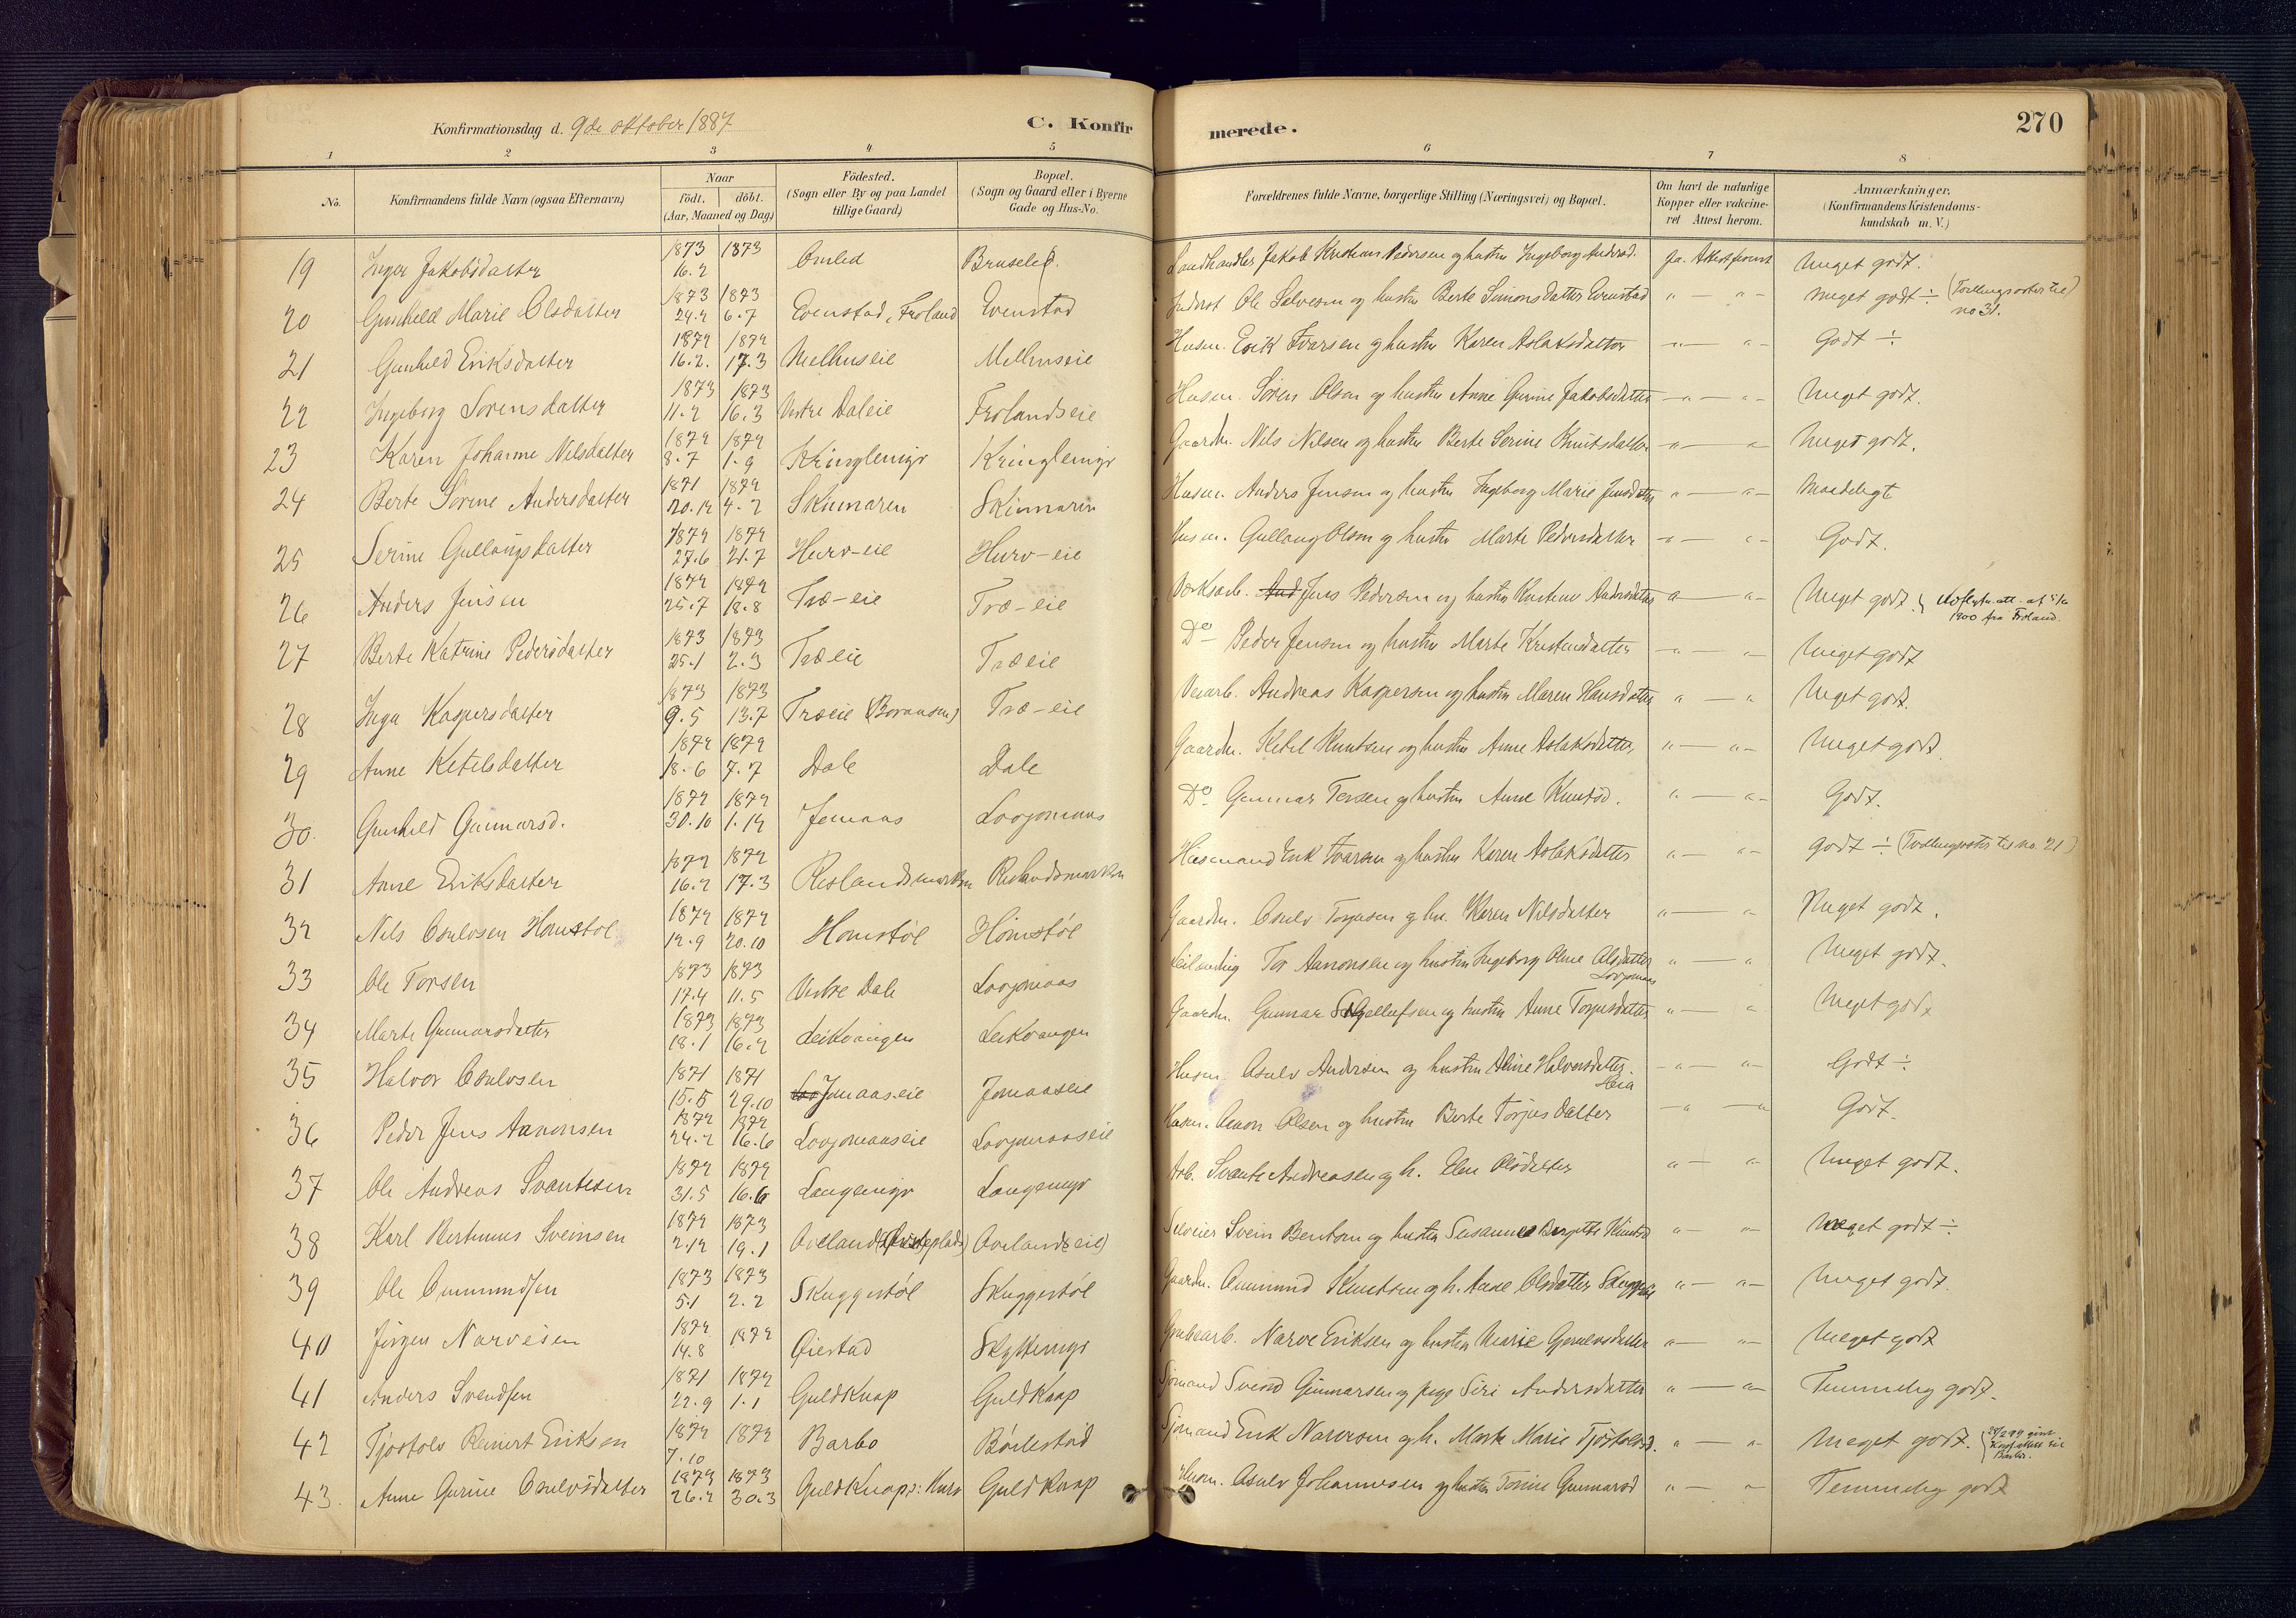 Konfirmationsdag d. 9de oktober 1887
C. Konfirmerede.
270
1 2 3 4 5 6 7 8
No.
Konfirmandens fulde Navn (ogsaa Efternavn)
Naar
födt. döbt.
(Aar, Maaned og Dag)
Födested.
(Sogn eller By og paa Landet
tillige Gaard)
Bopæl.
(Sogn og Gaard eller i Byerne
Gade og Hus-No.
Forældrenes fulde Navne, borgerlige Stilling (Næringsvei) og Bopæl.
Om havt de naturlige
Kopper eller vakcine-
ret Attest herom.
Anmærkninger.
(Konfirmandens Kristendoms-
kundskab m. V.)
19 Inger Jakobsdatter 1873 16.2 1873 Bruseled. Landhandler Jakob Kristian Pedersen og hustru Ingeborg Andersd. Ja. Attest Meget godt.
20 Gunhild Marie Olsdatter 1873 24.2 1873 6.7 Evenstad, Froland Evenstad Inderst Ole Salvesen og hustru Berte Simonsdatter Evenstad " — " Meget godt ÷ (Tvillingsøster til
no 31.
21 Gunhild Eriksdatter 1872 16.2. 1872 17.3 Melhuseie Melhuseie Husm. Erik Ivarsen og hustru Karen Aslaksdatter " — " Godt ÷
22 Ingeborg Sørensdatter 1873 11.2 1873 16.3 Vestre Daleie Frolandseie Husm. Søren Olsen og hustru Anne Gurine Jakobsdatter " — " Meget godt.
23 Karen Johanne Nilsdatter 1872 8.7 1872 1.9 Kringlemyr Kringlemyr Gaardm. Nils Nilsen og hustru Berte Serine Knutsdatter " — " Meget godt.
24 Berte Sørine Andersdatter 1871 20.12 1872 4.2 Skinnaren Skinnaren Husm. Anders Jensen og hustru Ingeborg Marie Jensdatter " — " Maadeligt
25 Serine Gullaugsdatter 1872 27.6 1872 21.7 Hurv-eie Hurv-eie Husm. Gullaug Olsen og hustru Marte Pedersdatter " — " Godt.
26 Anders Jensen 1872 25.7 1872 18.8 Træ-eie Træ-eie Værksarb. Jens Pedersen og hustru Andersdatter " — " Meget godt.
1900 fra Froland.
27 Berte Katrine Pedersdatter 1873 25.1 1873 2.3 Træeie Træeie Do Peder Jensen og hustru Marte Kristensdatter " — " Meget godt
28 Inga Kaspersdatter 1873 9.5 1873 13.7 Træeie Træ-eie Veiarb. Andreas Kaspersen og hustru Maren Hansdatter " — " Meget godt.
29 Anne Ketilsdatter 1872 18.6 1872 7.7 Dale Dale Gaardm. Ketil Knutsen og hustru Anne Aslaksdatter, " — " Meget godt
30. Gunhild Gunnarsd. 1872 30.10 1872 1.12 Jomaas Lovjomaas Do Gunnar Torsen og hustru Anne Knutsd. " — " Godt.
31 Anne Eriksdatter 1872 16.2 1872 17.3 Rislandsmarken Rislandsmarken Husmand Erik Ivarsen og hustru Karen Aslaksdatter " — " godt ÷ (Tvillingsøster til no. 21)
32 Nils Osulvsen Homstøl 1872 12.9 1872 20.10 Homstøl Homstøl Gaardm. Osulv Torjusen og hu. Karen Nilsdatter " — " Meget godt.
33 Ole Torsen 1873 17.4 1873 11.5 Vestre Dale Lovjomaas Leilending Tor Aanonsen og hustru Ingeborg Olsdatter
Lovjomaas " — " Meget godt.
34 Marte Gunnarsdatter 1873 18.1 1873 16.2 Leikvangen Leikvangen Gaardm. Gunnar og hustru Anne Torjusdatter " — " Meget godt
35 Halvor Osulvsen 1871 15.5 1871 29.10 Jomaaseie Jomaaseie Husm. Osulv Andersen og hustru Halvorsdatter.
Heia " — " Godt ÷
36 Peder Jens Aanonsen 1872 24.2 1872 16.6 Lovjomaaseie Lovjomaaseie Husm. Aanon Olsen og hustru Berte Torjusdatter " — " Godt.
37 Ole Andreas Svantesen 1872 31.5 1872 16.6 Langemyr Langemyr Arb. Svante Andreasen og h. Olsdatter " — " Meget godt.
38 Karl Bertinius Sveinsen 1872 2.12 1873 19.1 Ovelands Ovelandseie Selveier Svein Bentsen og hustru Susanne Birgitte Knutsd " — " Meget godt ÷
39 Ole Omundsen 1873 5.1 1873 2.2 Skuggestøl Skuggestøl Gaardm. Omund Knutsen og h. Anne Olsdatter " — " Meget godt.
40 Jørgen Narvesen 1872 14.8 1872 Øiestad Skyttemyr Grubearb. Narve Eriksen og hustru Marie " — " Meget godt
41 Anders Svendsen 1871 22.9 1872 1.1 Guldknap Guldknap Sjømand Svend Gunnarsen og pige Siri Andersdatter " — " Temmelig godt.
42 Tjøstolv Reinert Eriksen 1872 7.10 1872 Barbo Bøilestad Sjømand Erik Narvesen og h. Marte Marie Tjøstolvsd. " — " Meget godt.
43. Anne Gurine Osulvsdatter 1873 26.2 1873 30.3 Guldknap Guldknap Husm. Osulv Johannesen og hustru Tomine Gunnarsd " — " Temmelig godt